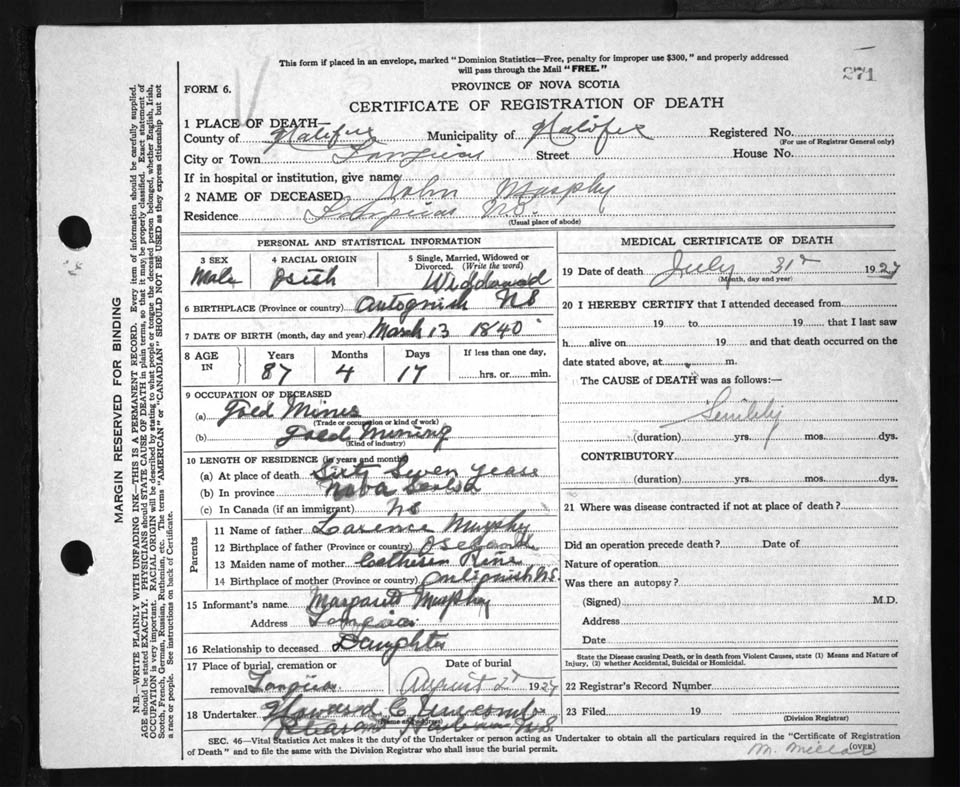 This form if placed in an envelope, marked "Dominion Statistics—Free, penalty for improper use $300," and properly addressed
will pass through the Mail "FREE."
271
FORM 6.
PROVINCE OF NOVA SCOTIA
CERTIFICATE OF REGISTRATION OF DEATH
1 PLACE OF DEATH—
County of Halifax Municipality of Halifax Registered No.
(For use of Registrar General only)
City or Town Street House No.
If in hospital or institution, give name
2 NAME OF DECEASED John Murphy
Residence N.S.
(Usual place of abode)
PERSONAL AND STATISTICAL INFORMATION
3 SEX 4 RACIAL ORIGIN 5 Single, Married, Widowed or Divorced. (Write the word)
Male Irish Widdowed
6 BIRTHPLACE (Province or country) NS
7 DATE OF BIRTH (month, day and year) March 13 1840
8 AGE IN Years Months Days If less than one day,
87 4 17 hrs. or min.
9 OCCUPATION OF DECEASED
(a) Gold
(Trade or occupation or kind of work)
(b) Gold Mining
(Kind of industry)
10 LENGTH OF RESIDENCE (in years and months)
(a) At place of death Sixty Seven
(b) In province Nova
(c) In Canada (if an immigrant) NS
Parents
11 Name of father Murphy
12 Birthplace of father (Province or country)
13 Maiden name of mother
14 Birthplace of mother (Province or country) N.S.
15 Informant's name Margaret Murphy
Address
16 Relationship to deceased Daughter
17 Place of burial, cremation or Date of burial
removal August 2 1927
18 Undertaker Howard C
(Name and address)
N.S.
MEDICAL CERTIFICATE OF DEATH
19 Date of death July 31 1927
(Month, day and year)
20 I HEREBY CERTIFY that I attended deceased from
19 to 19 that I last saw
h alive on 19 and that death occurred on the
date stated above, at m.
The CAUSE of DEATH was as follows:—
(duration) yrs. mos. dys.
CONTRIBUTORY
(duration) yrs. mos. dys.
21 Where was disease contracted if not at place of death?
Did an operation precede death? Date of
Nature of operation
Was there an autopsy?
(Signed) M.D.
Address
Date
State the Disease causing Death, or in death from Violent Causes, state (1) Means and Nature of
Injury, (2) whether Accidental, Suicidal or Homicidal.
22 Registrar's Record Number
23 Filed 19
(Division Registrar)
SEC. 46—Vital Statistics Act makes it the duty of the Undertaker or person acting as Undertaker to obtain all the particulars required in the "Certificate of Registration
of Death" and to file the same with the Division Registrar who shall issue the burial permit.
(OVER)
M. Millar
MARGIN RESERVED FOR BINDING
N.B.—WRITE PLAINLY WITH UNFADING INK—THIS IS A PERMANENT RECORD. Every item of information should be carefully supplied.
AGE should be stated EXACTLY. PHYSICIANS should STATE CAUSE OF DEATH in plain terms, so that it may be properly classified. Exact statement of
OCCUPATION is very important. RACIAL ORIGIN will be described by stating to what people or tongue the deceased person belonged, whether English, Irish,
Scotch, French, German, Russian, Ruthenian, etc. The terms "AMERICAN" or "CANADIAN" SHOULD NOT BE USED as they express citizenship but not
a race or people. See instructions on back of Certificate.